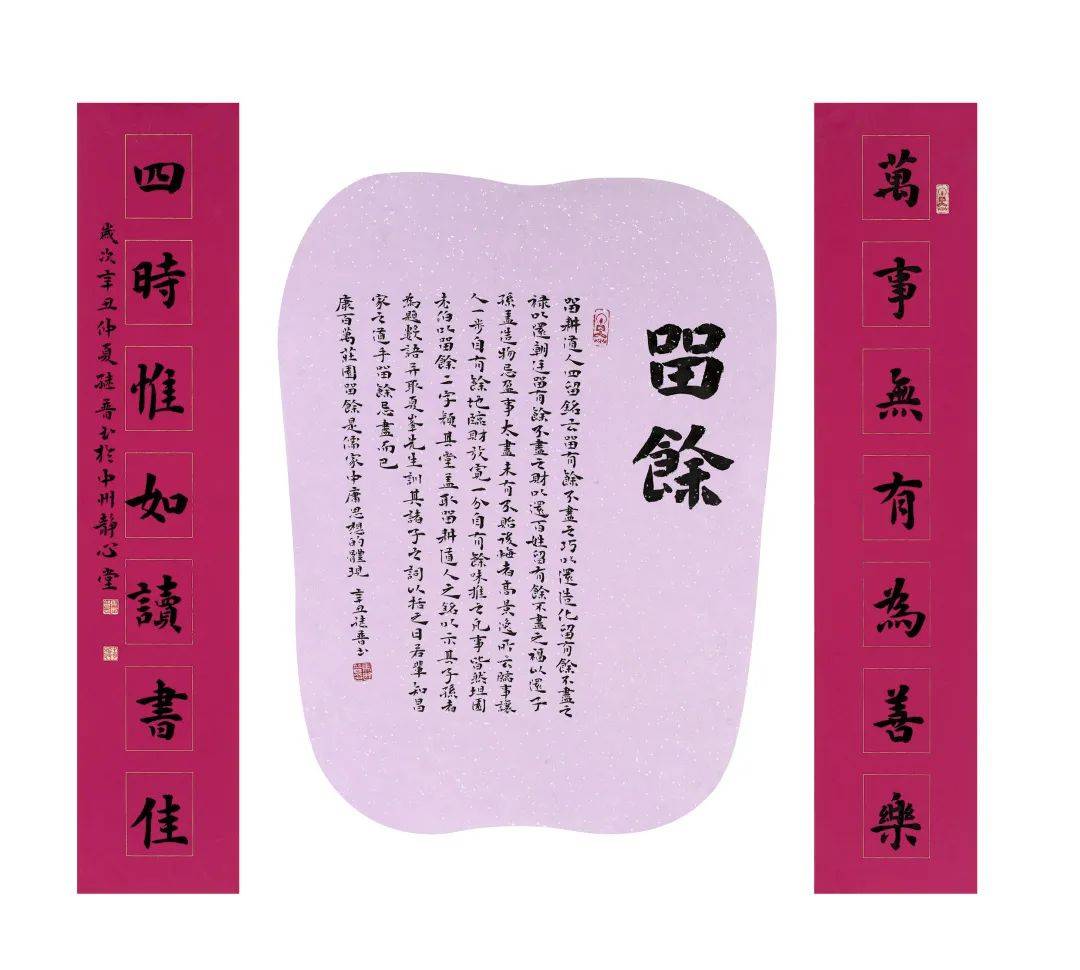 萬事無有為善樂
留餘
留耕道人四留銘云留有餘不盡之巧以還造化留有餘不盡之
祿以還朝廷留有餘不盡之財以還百姓留有餘不盡之福以還子
孫蓋造物忌盈事太盡未有不貽後悔者高景逸所云臨事讓
人一步自有餘地臨財放寬一分自有餘味推之凡事皆然坦園
老伯以留餘二字顏其堂蓋取留耕道人之銘以示其子孫者
為題數語并取夏峯先生訓其諸子之詞以括之曰若輩知昌
家之道乎留餘忌盡而已
康百萬莊園留餘是儒家中庸思想的體現 辛丑 普书
四時惟如讀書佳
歲次辛丑仲夏 普书於中州靜心堂